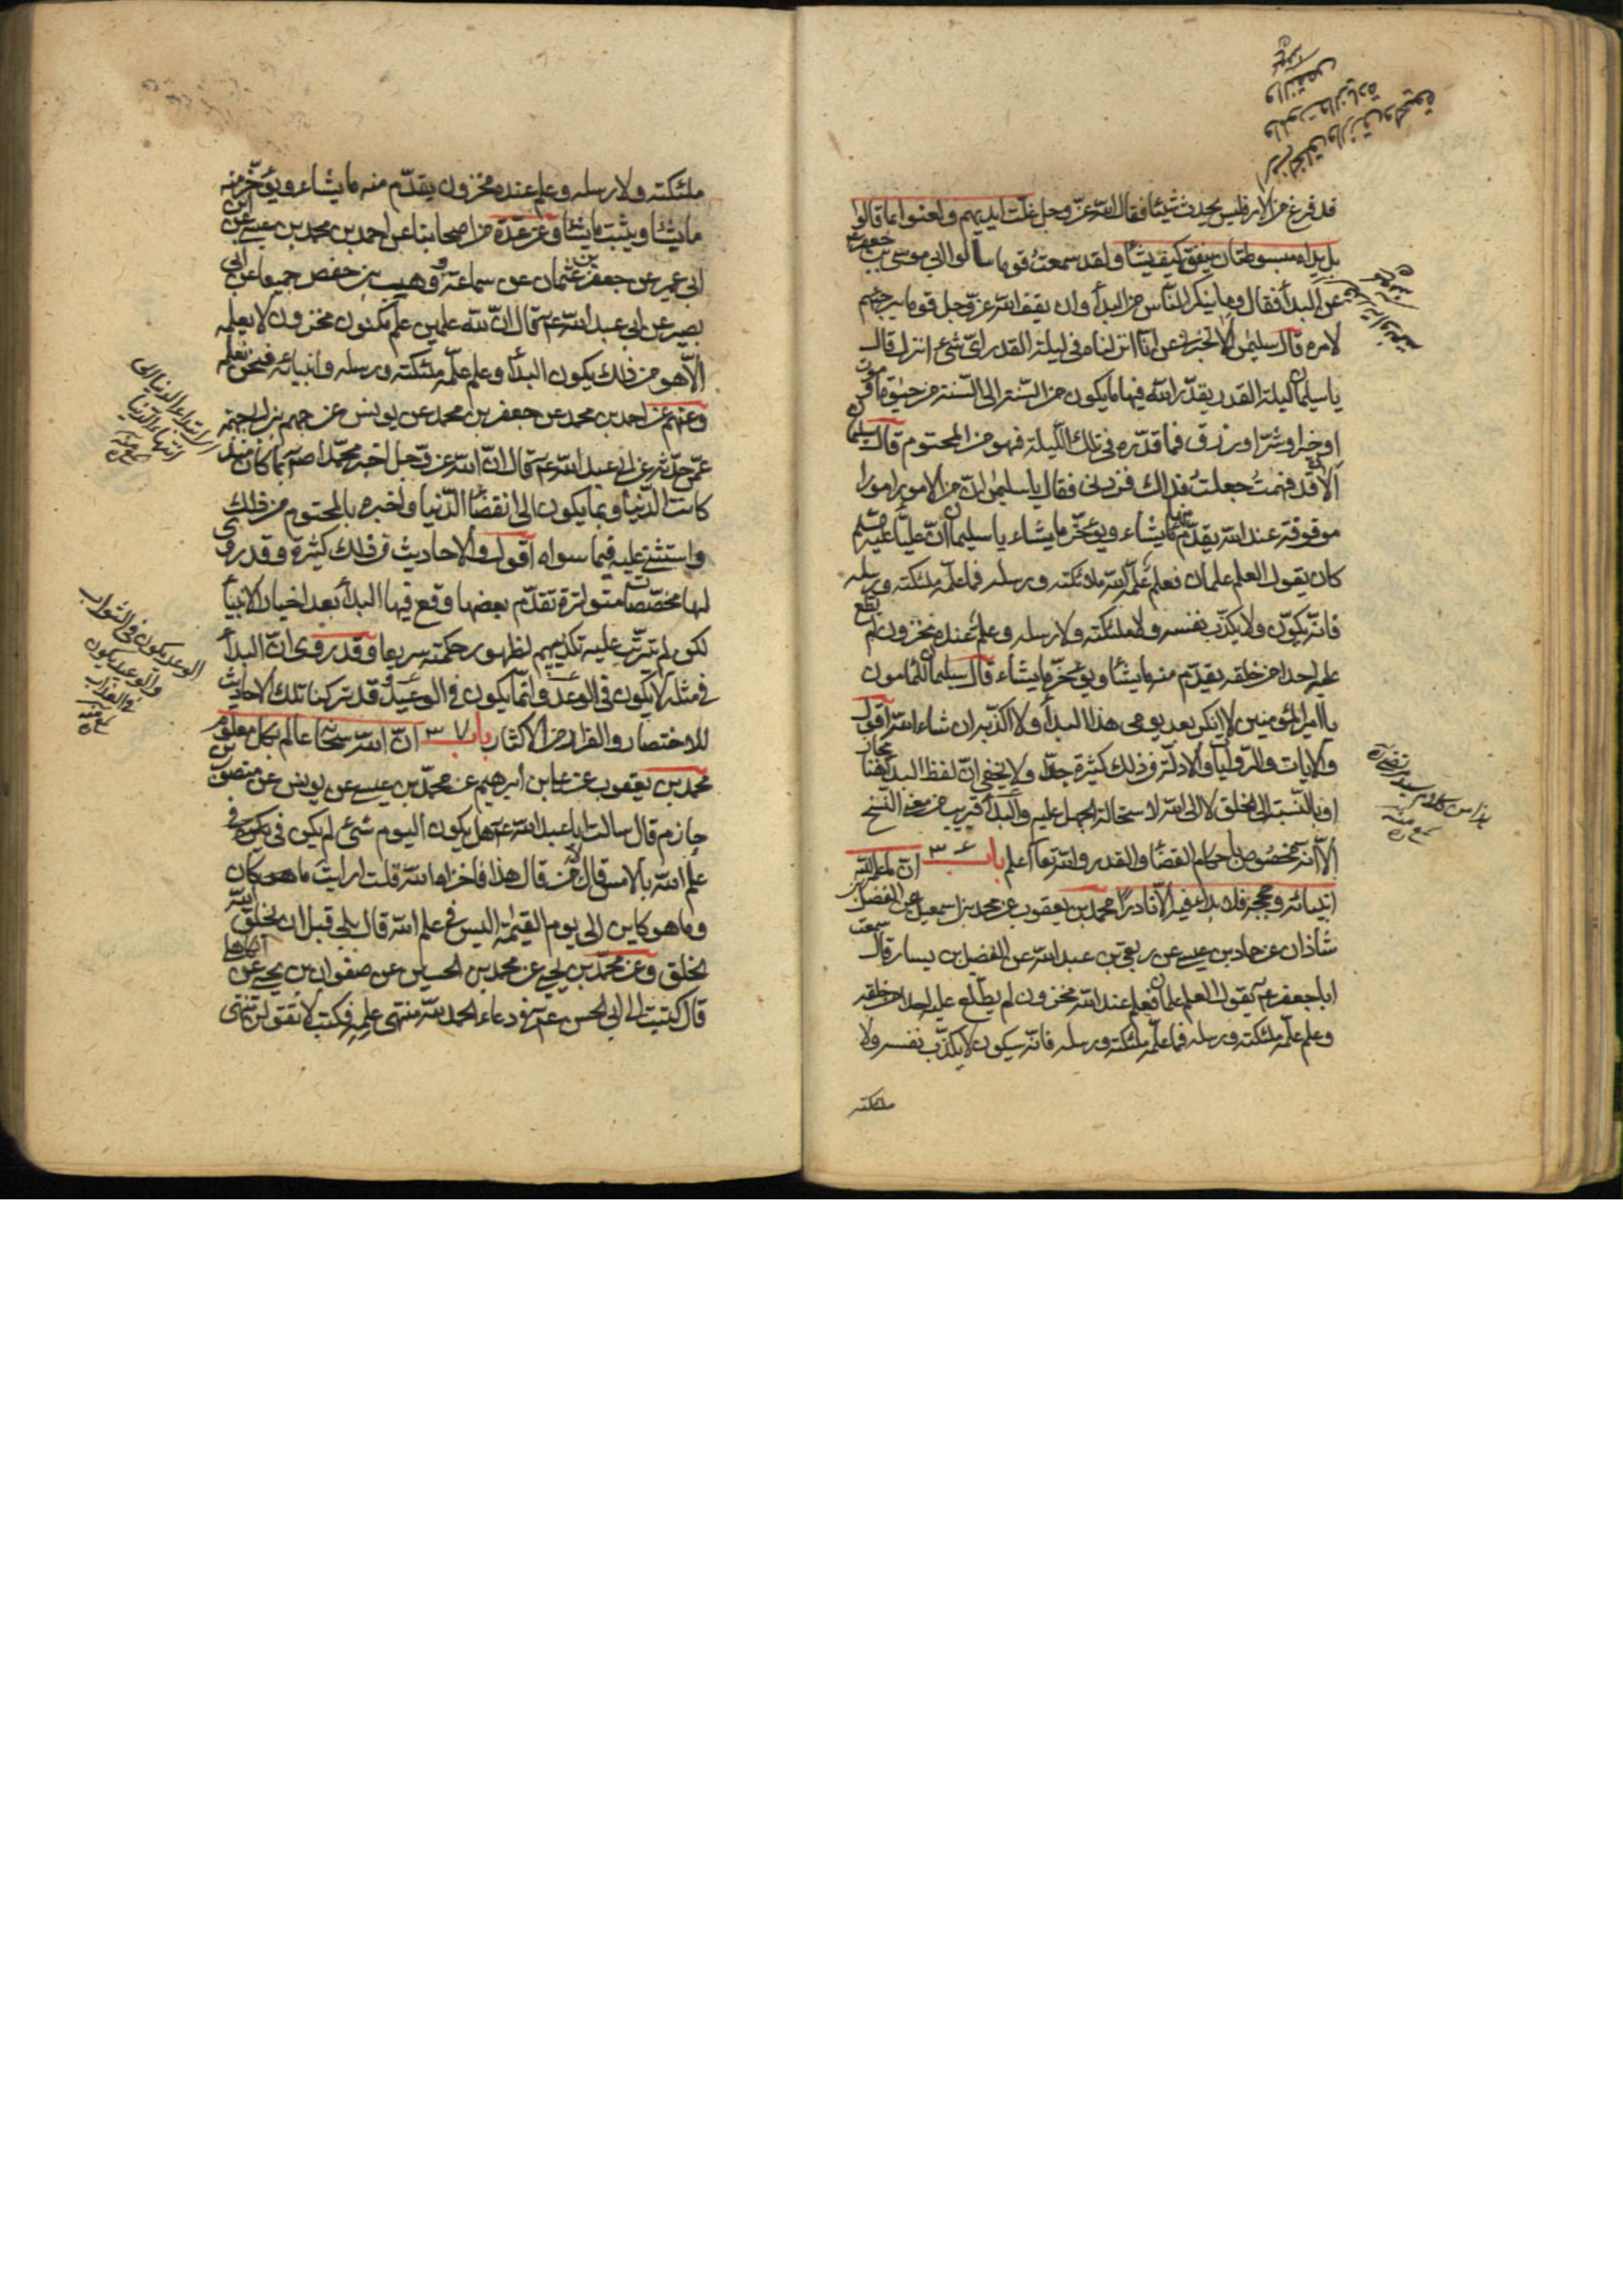 قد فرغ من الامر فليس يحدث شيئا فقال الله عز وجل غلت ايديهم ولعنوا بما قالوا
بل يداه مبسوطتان ينفق كيف يشاء ولقد سمعت قوما سالوا ابي موسى بن جعفر ع
عن البدأ فقال وما ينكر الناس من البدأ وان يقف الله عز وجل قوما يرجئهم
لامره قال سليمن الا تخبرني عن انا انزلناه في ليلة القدر اى شئ انزل قال
يا سليمان ليلة القدر يقدر الله فيها ما يكون من السنة الى السنة من حيوة او موت
او خير او شر او رزق فما قدره في تلك الليلة فهو من المحتوم قال سليمان
الان قد فهمت جعلت فداك فزدنى فقال يا سليمن ان من الامور امورا
موقوفة عند الله يقدم منها ما يشاء ويؤخر ما يشاء يا سليمان ان عليا عليه السلم
كان يقول العلم علمان فعلم علمه الله ملائكته ورسله فما علمه ملئكته ورسله
فانه يكون ولا يكذب نفسه ولا ملئكته ولا رسله وعلم عنده مخزون لم يطلع
عليه احدا من خلقه يقدم منه ما يشاء ويؤخر ما يشاء قال سليمان للمامون
يا امير المؤمنين لا انكر بعد يومى هذا البدأ ولا اكذب به ان شاء الله اقول
والايات والروايات والادلة في ذلك كثيرة جدا ولا يخفى ان لفظ البدأ هنا مجاز
او بالنسبة الى الخلق لا الى الله لاستحالة الجهل عليه والبدأ قريب من معنى النسخ
الا انه مخصوص باحكام القضاء والقدر والله تعا اعلم باب ٣٦ ان ما علمه الله
انبيائه وحججه فلا بداء فيه الا نادرا محمد بن يعقوب عن محمد بن اسمعيل عن الفضل بن
شاذان عن حماد بن عيسى عن ربعى بن عبد الله عن الفضيل بن يسار قال سمعت
ابا جعفر ع يقول العلم علمان فعلم عند الله مخزون لم يطلع عليه احدا من خلقه
وعلم علمه ملئكته ورسله فما علمه ملئكته ورسله فانه سيكون لا يكذب نفسه ولا
ملئكته
ملئكته ولا رسله وعلم عنده مخزون يقدم منه ما يشاء ويؤخر منه
ما يشاء ويثبت ما يشاء وعن عدة من اصحابنا عن احمد بن محمد بن عيسى عن ابن
ابى عمير عن جعفر بن عثمان عن سماعة ووهيب بن حفص جميعا عن ابى
بصير عن ابى عبد الله ع قال ان لله علمين علم مكنون مخزون لا يعلمه
الا هو من ذلك يكون البدأ وعلم علمه ملئكته ورسله وانبيائه فنحن نعلمه
وعنهم عن احمد بن محمد عن جعفر بن محمد عن يونس عن جهم بن ابى جهمة
عمن حدثه عن ابى عبد الله ع قال ان الله عز وجل اخبر محمدا ص بما كان منذ
كانت الدنيا وبما يكون الى انقضاء الدنيا واخبره بالمحتوم من ذلك
واستثنى عليه فيما سواه اقول والاحاديث في ذلك كثيرة وقد روى
لها مخصصات متواترة تقدم بعضها وقع فيها البدأ بعد اخبار الانبياء
لكن لم تترتب عليه تكذيبهم لظهور حكمته سريعا وقد روى ان البدأ
في مثله لا يكون في الوعد وانما يكون في الوعيد وقد تركنا تلك الاحاديث
للاختصار والفرار من الاكثار باب ٣٧ ان الله سبحانه عالم بكل معلوم
محمد بن يعقوب عن على بن ابرهيم عن محمد بن عيسى عن يونس عن منصور بن
حازم قال سالت ابا عبد الله ع هل يكون اليوم شئ لم يكن في
علم الله بالامس قال لا من قال هذا فاخزاه الله قلت ارايت ما هو كان
وما هو كاين الى يوم القيمة اليس في علم الله قال بلى قبل ان يخلق الله
الخلق وعن محمد بن يحيى عن محمد بن الحسين عن صفوان بن يحيى عن الكاهلى
قال كتبت الى ابى الحسن ع في دعاء الحمد لله منتهى علمه فكتب لا تقولن منتهى
اى من ابتداء الدنيا الى
انتهاء الدنيا
الوعد يكون في الثواب
والوعيد يكون
في العذاب